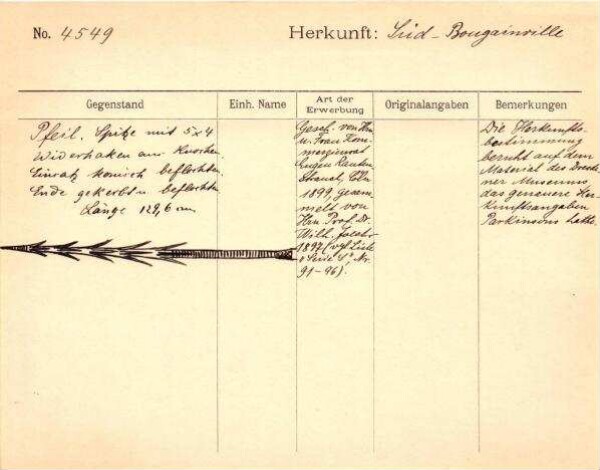 No. 4549
Herkunft: Süd-Bougainville
Gegenstand
Einh. Name
Art der Erwerbung
Originalangaben
Bemerkungen
Pfeil. Spitze mit 5x4
Widerhaken aus Knochen.
Einsatz konisch beflochten.
Ende gekerbt u. beflochten.
Länge 129,6 cm
Gesch. von Hrn
u. Frau Kom-
merzienrat
Eugen Rauten-
strauch, Cöln
1899, gesam-
melt von
Hrn. Prof. Dr.
Wilh. Joest
1897 (vgl. Liste
Nr.
91-96).
Die Herkunfts-
bestimmung
beruht auf dem
Material des Dresde-
ner Museums,
das genauere Her-
kunftsangaben
Parkinsons hatte.